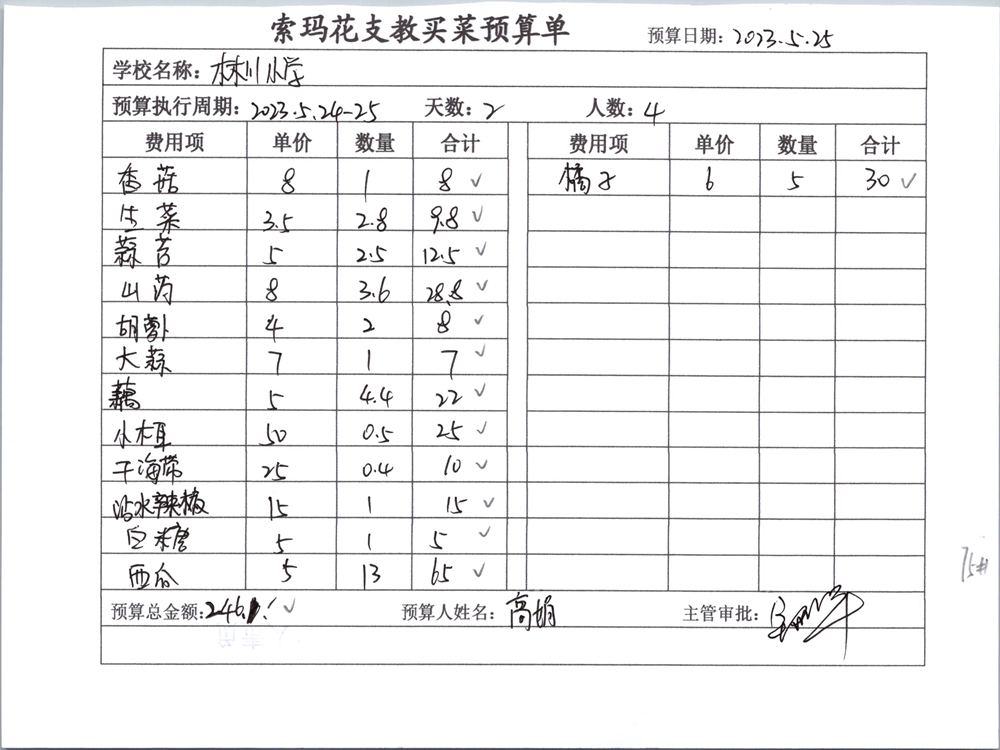 索玛花支教买菜预算单
预算日期: 2023.5.25
学校名称: 林川小学
预算执行周期: 2023.5.24-25 天数: 2 人数: 4
费用项 单价 数量 合计 费用项 单价 数量 合计
香菇 8 1 8 ✓ 橘子 6 5 30 ✓
生菜 3.5 2.8 9.8 ✓
蒜苔 5 2.5 12.5 ✓
山药 8 3.6 28.8 ✓
胡萝卜 4 2 8 ✓
大蒜 7 1 7 ✓
藕 5 4.4 22 ✓
小木耳 50 0.5 25 ✓
干海带 25 0.4 10 ✓
沾水辣椒 15 1 15 ✓
白糖 5 1 5 ✓
西瓜 5 13 65 ✓
75#
预算总金额: 246.1 ✓ 预算人姓名: 高娟 主管审批: